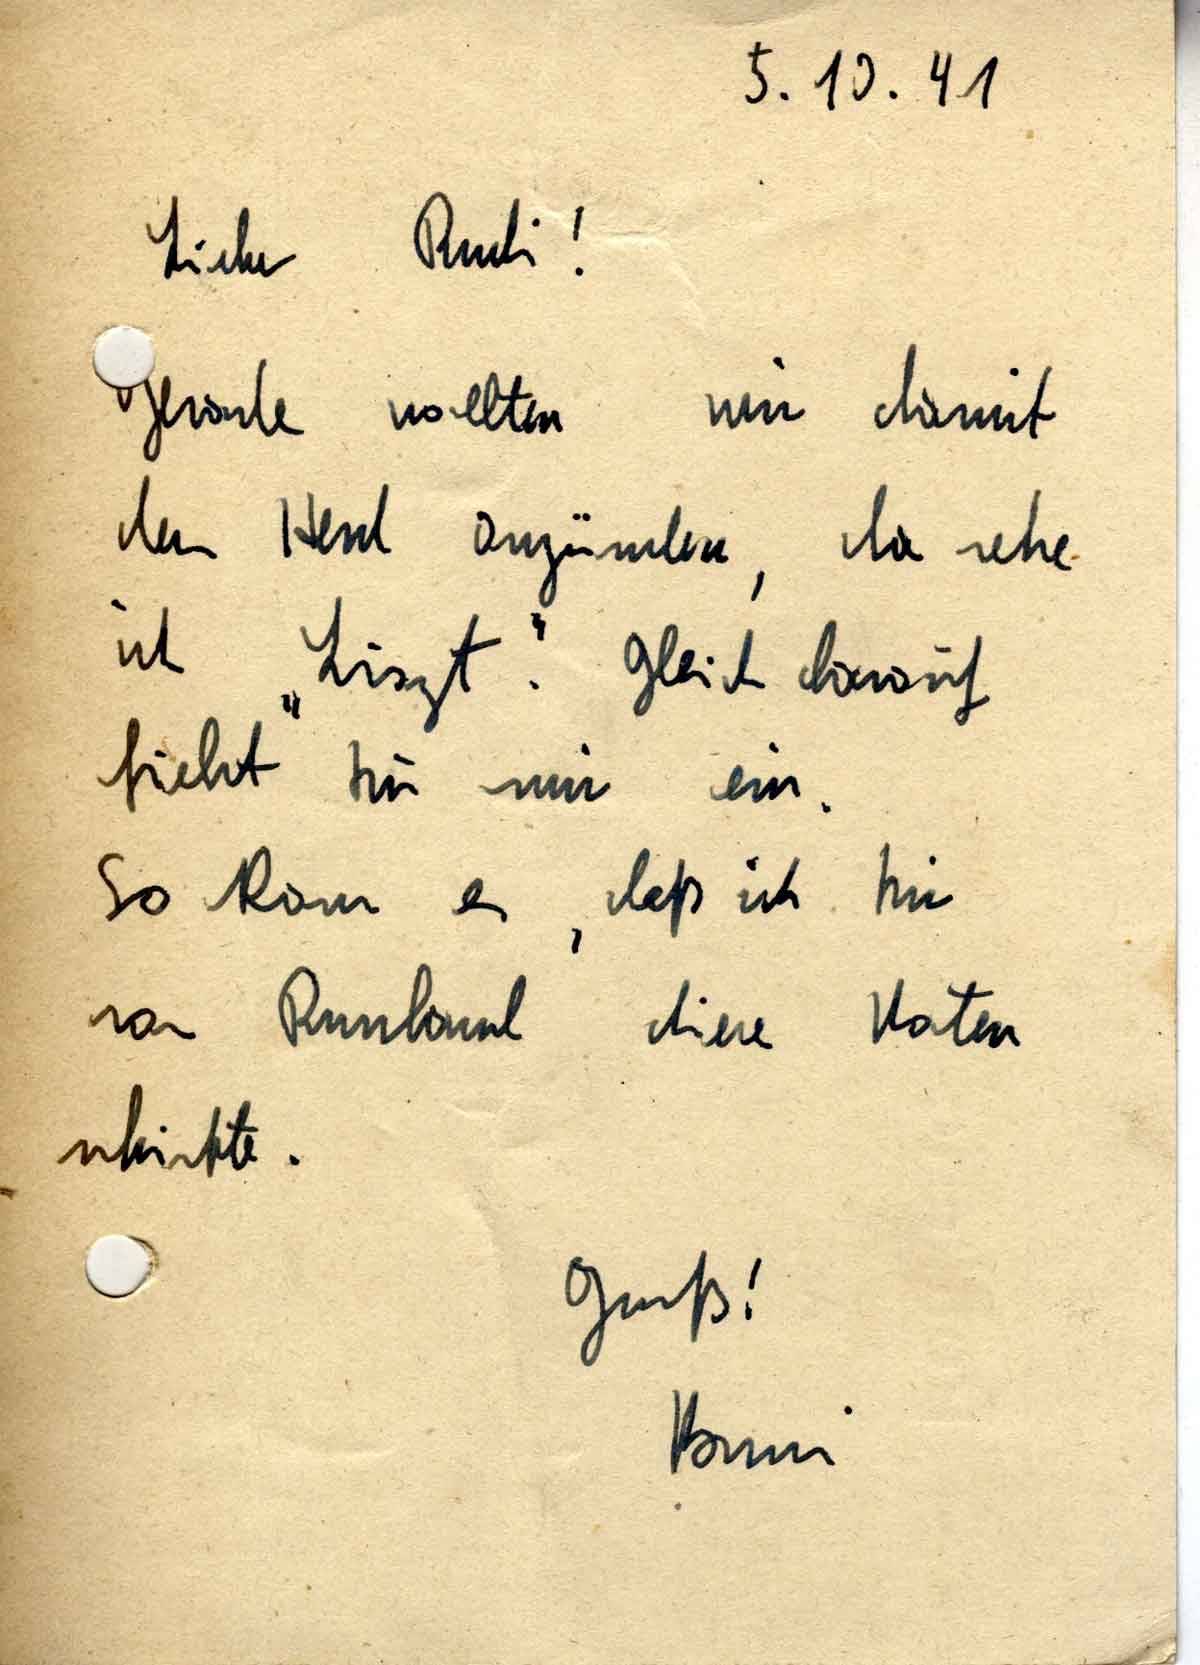 5.10.41
Lieber Rudi!
Gerade wollten wir damit
den Herd anzünden, da sehe
ich „Liszt“. Gleich darauf
fielst Du mir ein.
So kam es, daß ich Dir
von Russland diese Noten
schickte.
Gruß!